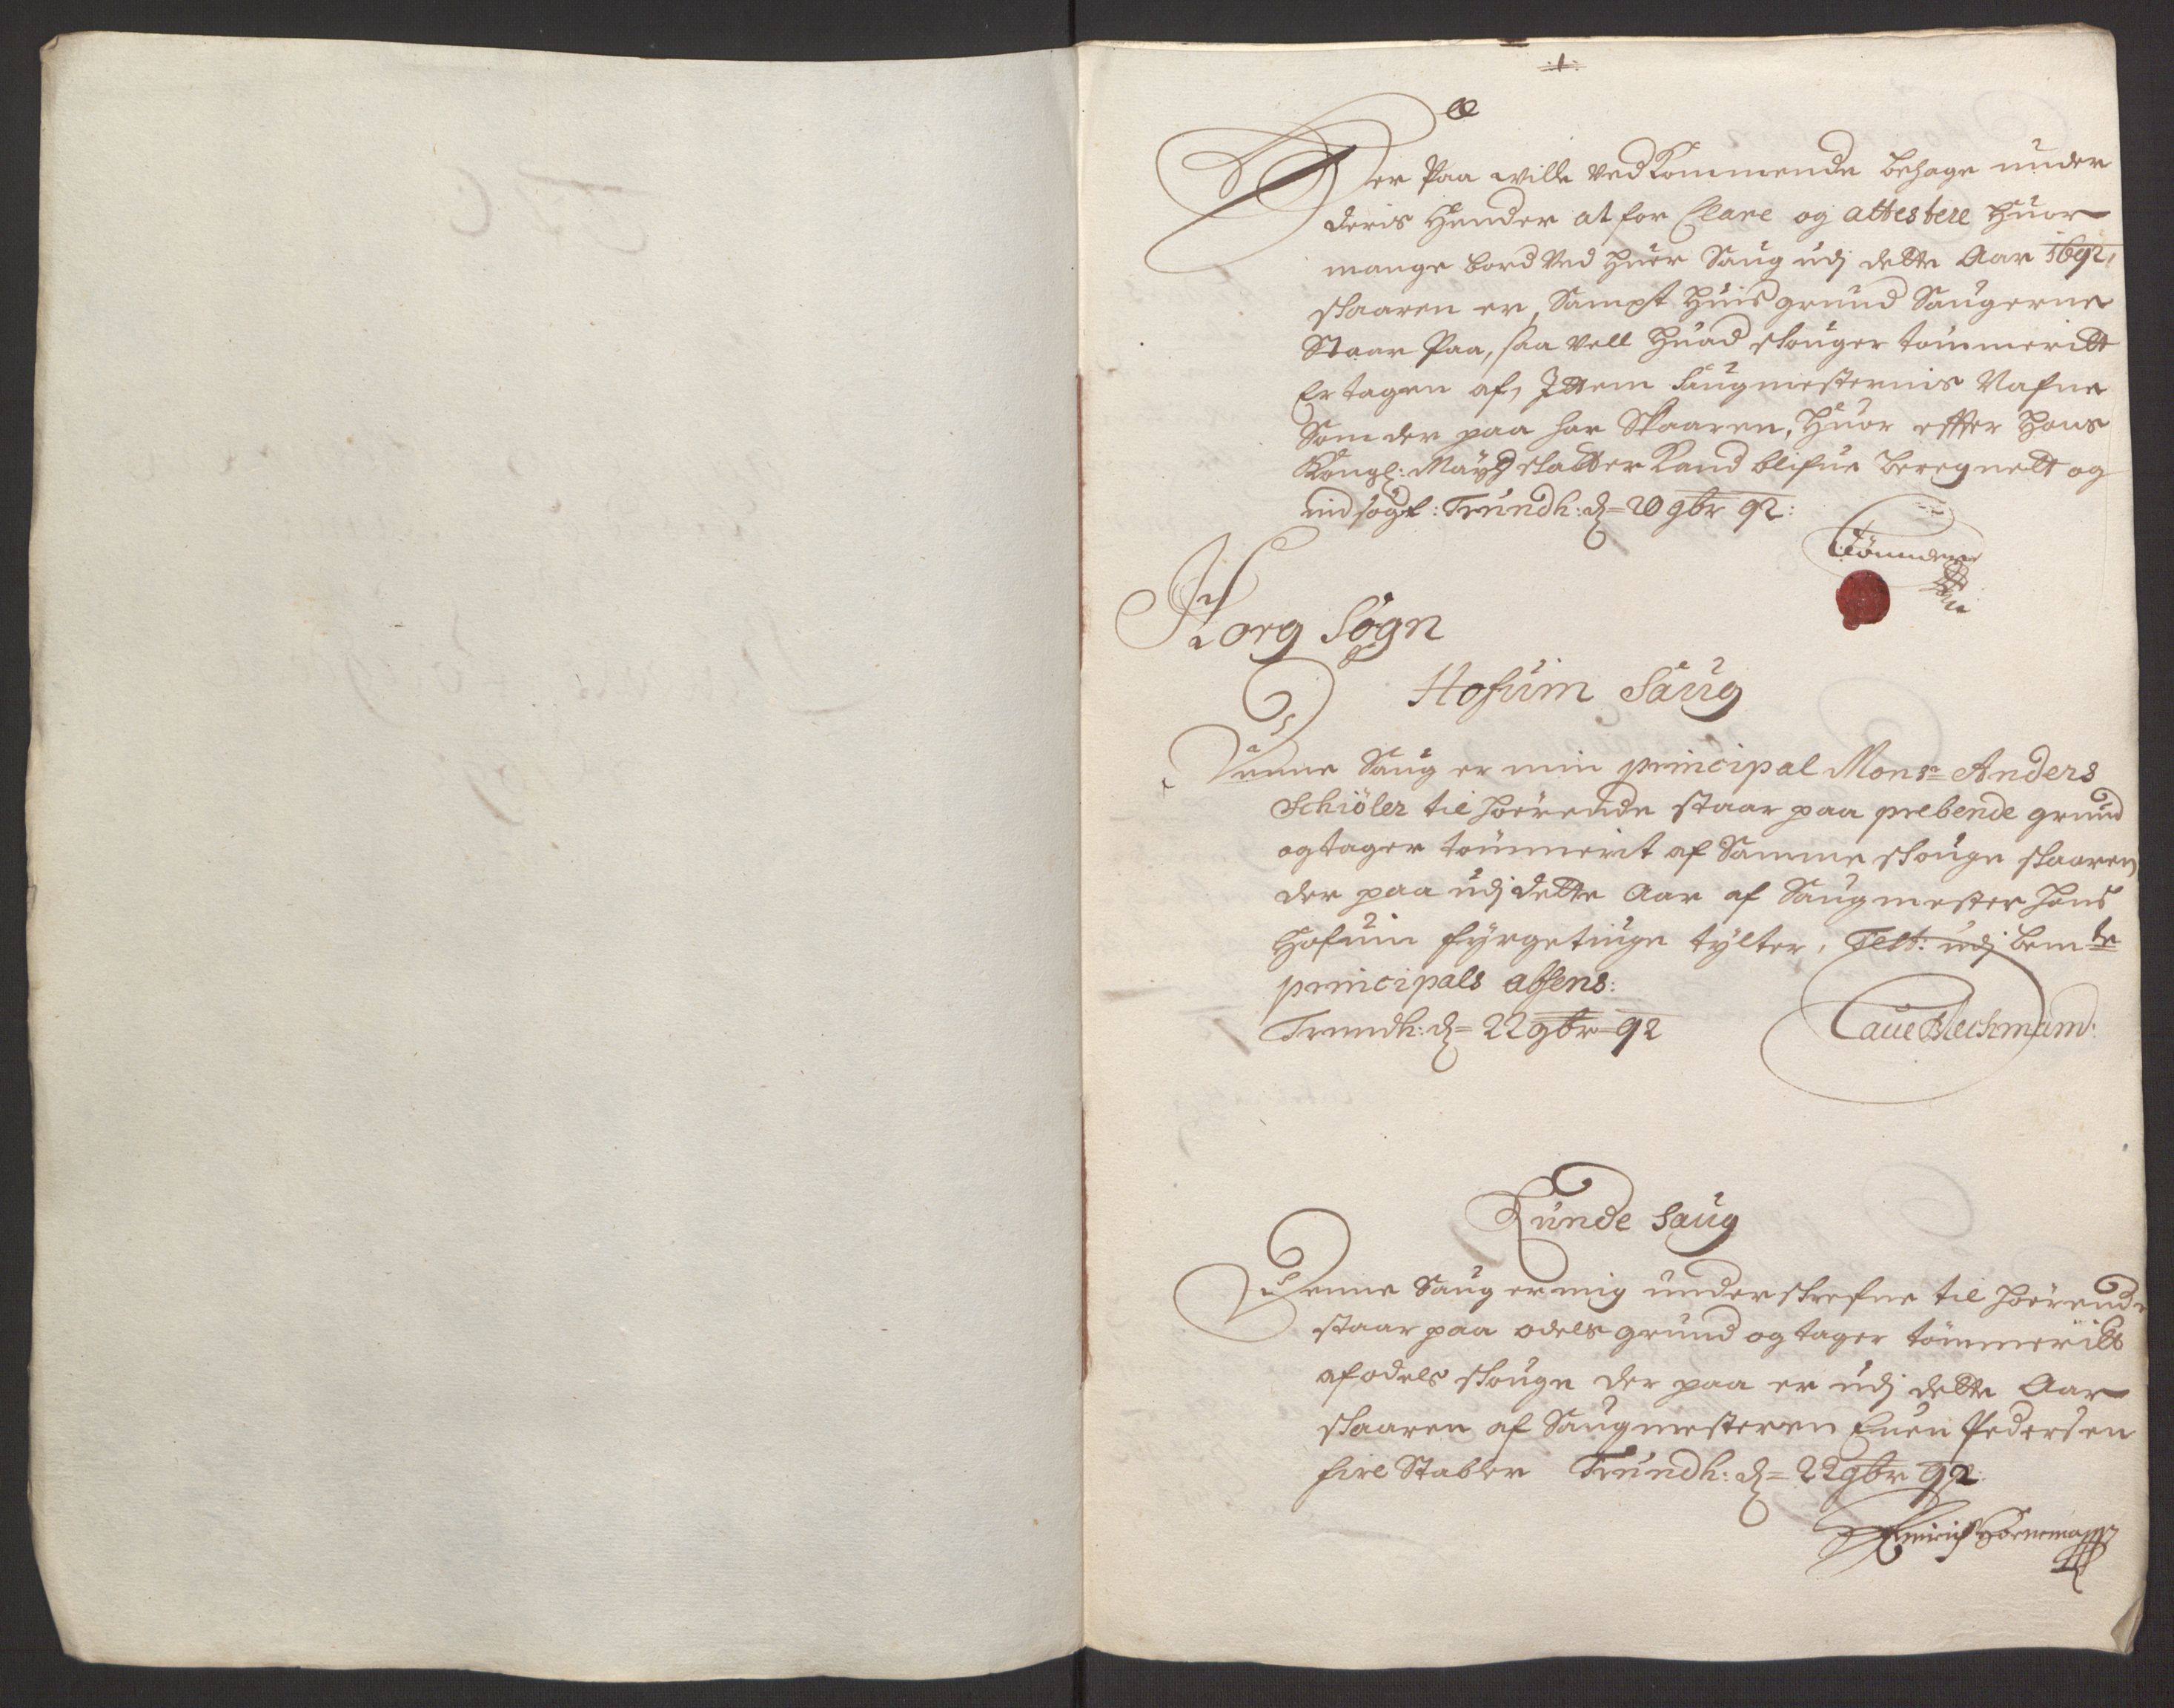 :1:
Her Paa wille vedKommende behage under
deris Hender at for Clare og attestere huor
mange bord Ved huer Saug udj dette Aar 1692,
skaaren er, Sampt huis grund Saugerne
Staar Paa, saa vell huad skouger tømmeritt
Er tagen af, Ittem Saugmesternis Nafne
Som der paa har Skaaren, huor effter Hans
Kongl: Mayts skatter Kand blifue beregnett og
indsøgt: Trundh: d= 20 9br 92:
Horg Sogn
Hofuim Saug
Denne Saug er min principal Monsr Anders
Schiöler til hörende staar paa prebende grund
og tager tømmerit af Samme skouge skaaren
der paa udj dette Aar af Saugmester Hans
Hofuim fyrgetiuge tylter, Test: udj bemte
principals absens:
Trundh: d= 22 9br 92
Lunde Saug
Denne Saug er mig underskrefne til hörende
staar paa odels grund og tager tømmeritt
af odels skouge der paa er udj dette Aar
skaaren af Saugmesteren Euen Pedersen
fire Stabler Trundh: d= 22 9br 92:
Henrich Hornemann